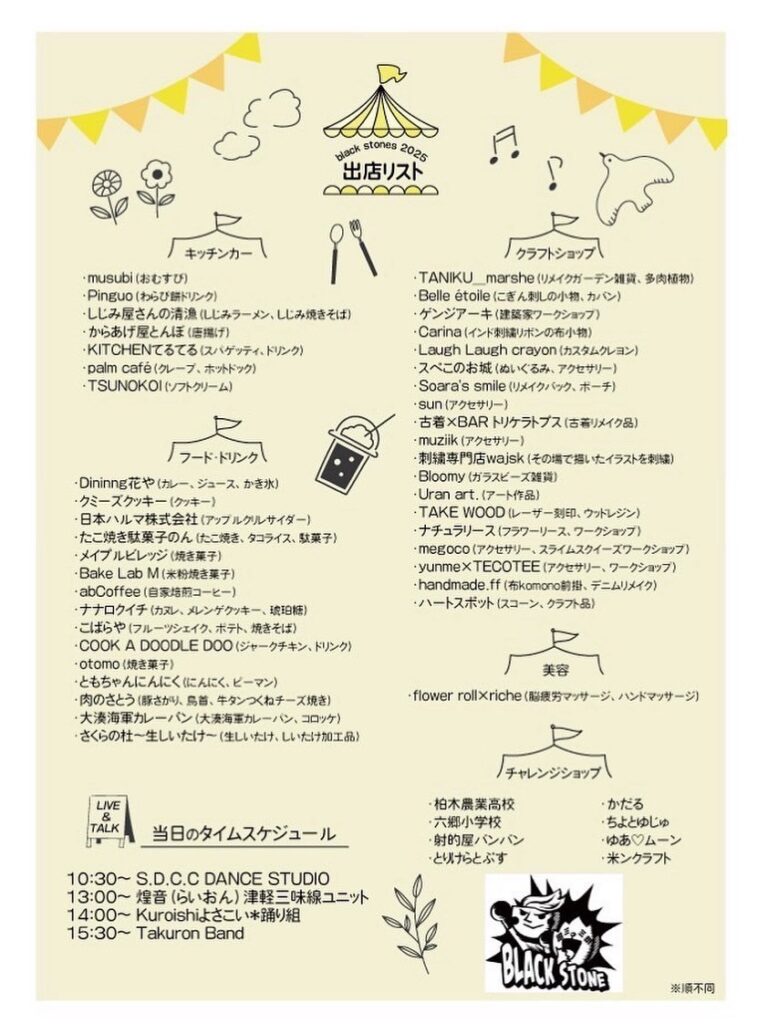 black stones 2025
出店リスト
キッチンカー
・musubi(おむすび)
・Pinguo(わらび餅ドリンク)
・しじみ屋さんの清漁(しじみラーメン、しじみ焼きそば)
・からあげ屋とんぼ(唐揚げ)
・KITCHENてるてる(スパゲッティ、ドリンク)
・palm café(クレープ、ホットドック)
・TSUNOKOI(ソフトクリーム)
フード・ドリンク
・Dininng花や(カレー、ジュース、かき氷)
・クミーズクッキー(クッキー)
・日本ハルマ株式会社(アップルクルサイダー)
・たこ焼き駄菓子のん(たこ焼き、タコライス、駄菓子)
・メイプルビレッジ(焼き菓子)
・Bake Lab M(米粉焼き菓子)
・abCoffee(自家焙煎コーヒー)
・ナナロクイチ(カヌレ、メレンゲクッキー、琥珀糖)
・こばらや(フルーツシェイク、ポテト、焼きそば)
・COOK A DOODLE DOO(ジャークチキン、ドリンク)
・otomo(焼き菓子)
・ともちゃんにんにく(にんにく、ピーマン)
・肉のさとう(豚さがり、鳥首、牛タンつくねチーズ焼き)
・大湊海軍カレーパン(大湊海軍カレーパン、コロッケ)
・さくらの杜〜生しいたけ〜(生しいたけ、しいたけ加工品)
クラフトショップ
・TANIKU__marshe(リメイクガーデン雑貨、多肉植物)
・Belle étoile(こぎん刺しの小物、カバン)
・ゲンジアーキ(建築家ワークショップ)
・Carina(インド刺繍リボンの布小物)
・Laugh Laugh crayon(カスタムクレヨン)
・スペこのお城(ぬいぐるみ、アクセサリー)
・Soara's smile(リメイクバック、ポーチ)
・sun(アクセサリー)
・古着×BAR トリケラトプス(古着リメイク品)
・muziik(アクセサリー)
・刺繍専門店wajsk(その場で描いたイラストを刺繍)
・Bloomy(ガラスビーズ雑貨)
・Uran art.(アート作品)
・TAKE WOOD(レーザー刻印、ウッドレジン)
・ナチュラリース(フラワーリース、ワークショップ)
・megoco(アクセサリー、スライムスクイーズワークショップ)
・yunme×TECOTEE(アクセサリー、ワークショップ)
・handmade.ff(布komono前掛、デニムリメイク)
・ハートスポット(スコーン、クラフト品)
美容
・flower roll×riche(脳疲労マッサージ、ハンドマッサージ)
チャレンジショップ
・柏木農業高校
・六郷小学校
・射的屋バンバン
・とりけらとぷす
・かだる
・ちよとゆじゅ
・ゆあ♡ムーン
・米ンクラフト
LIVE
&
TALK
当日のタイムスケジュール
10:30〜 S.D.C.C DANCE STUDIO
13:00〜 煌音(らいおん)津軽三味線ユニット
14:00〜 Kuroishiよさこい＊踊り組
15:30〜 Takuron Band
BLACK STONE
※順不同